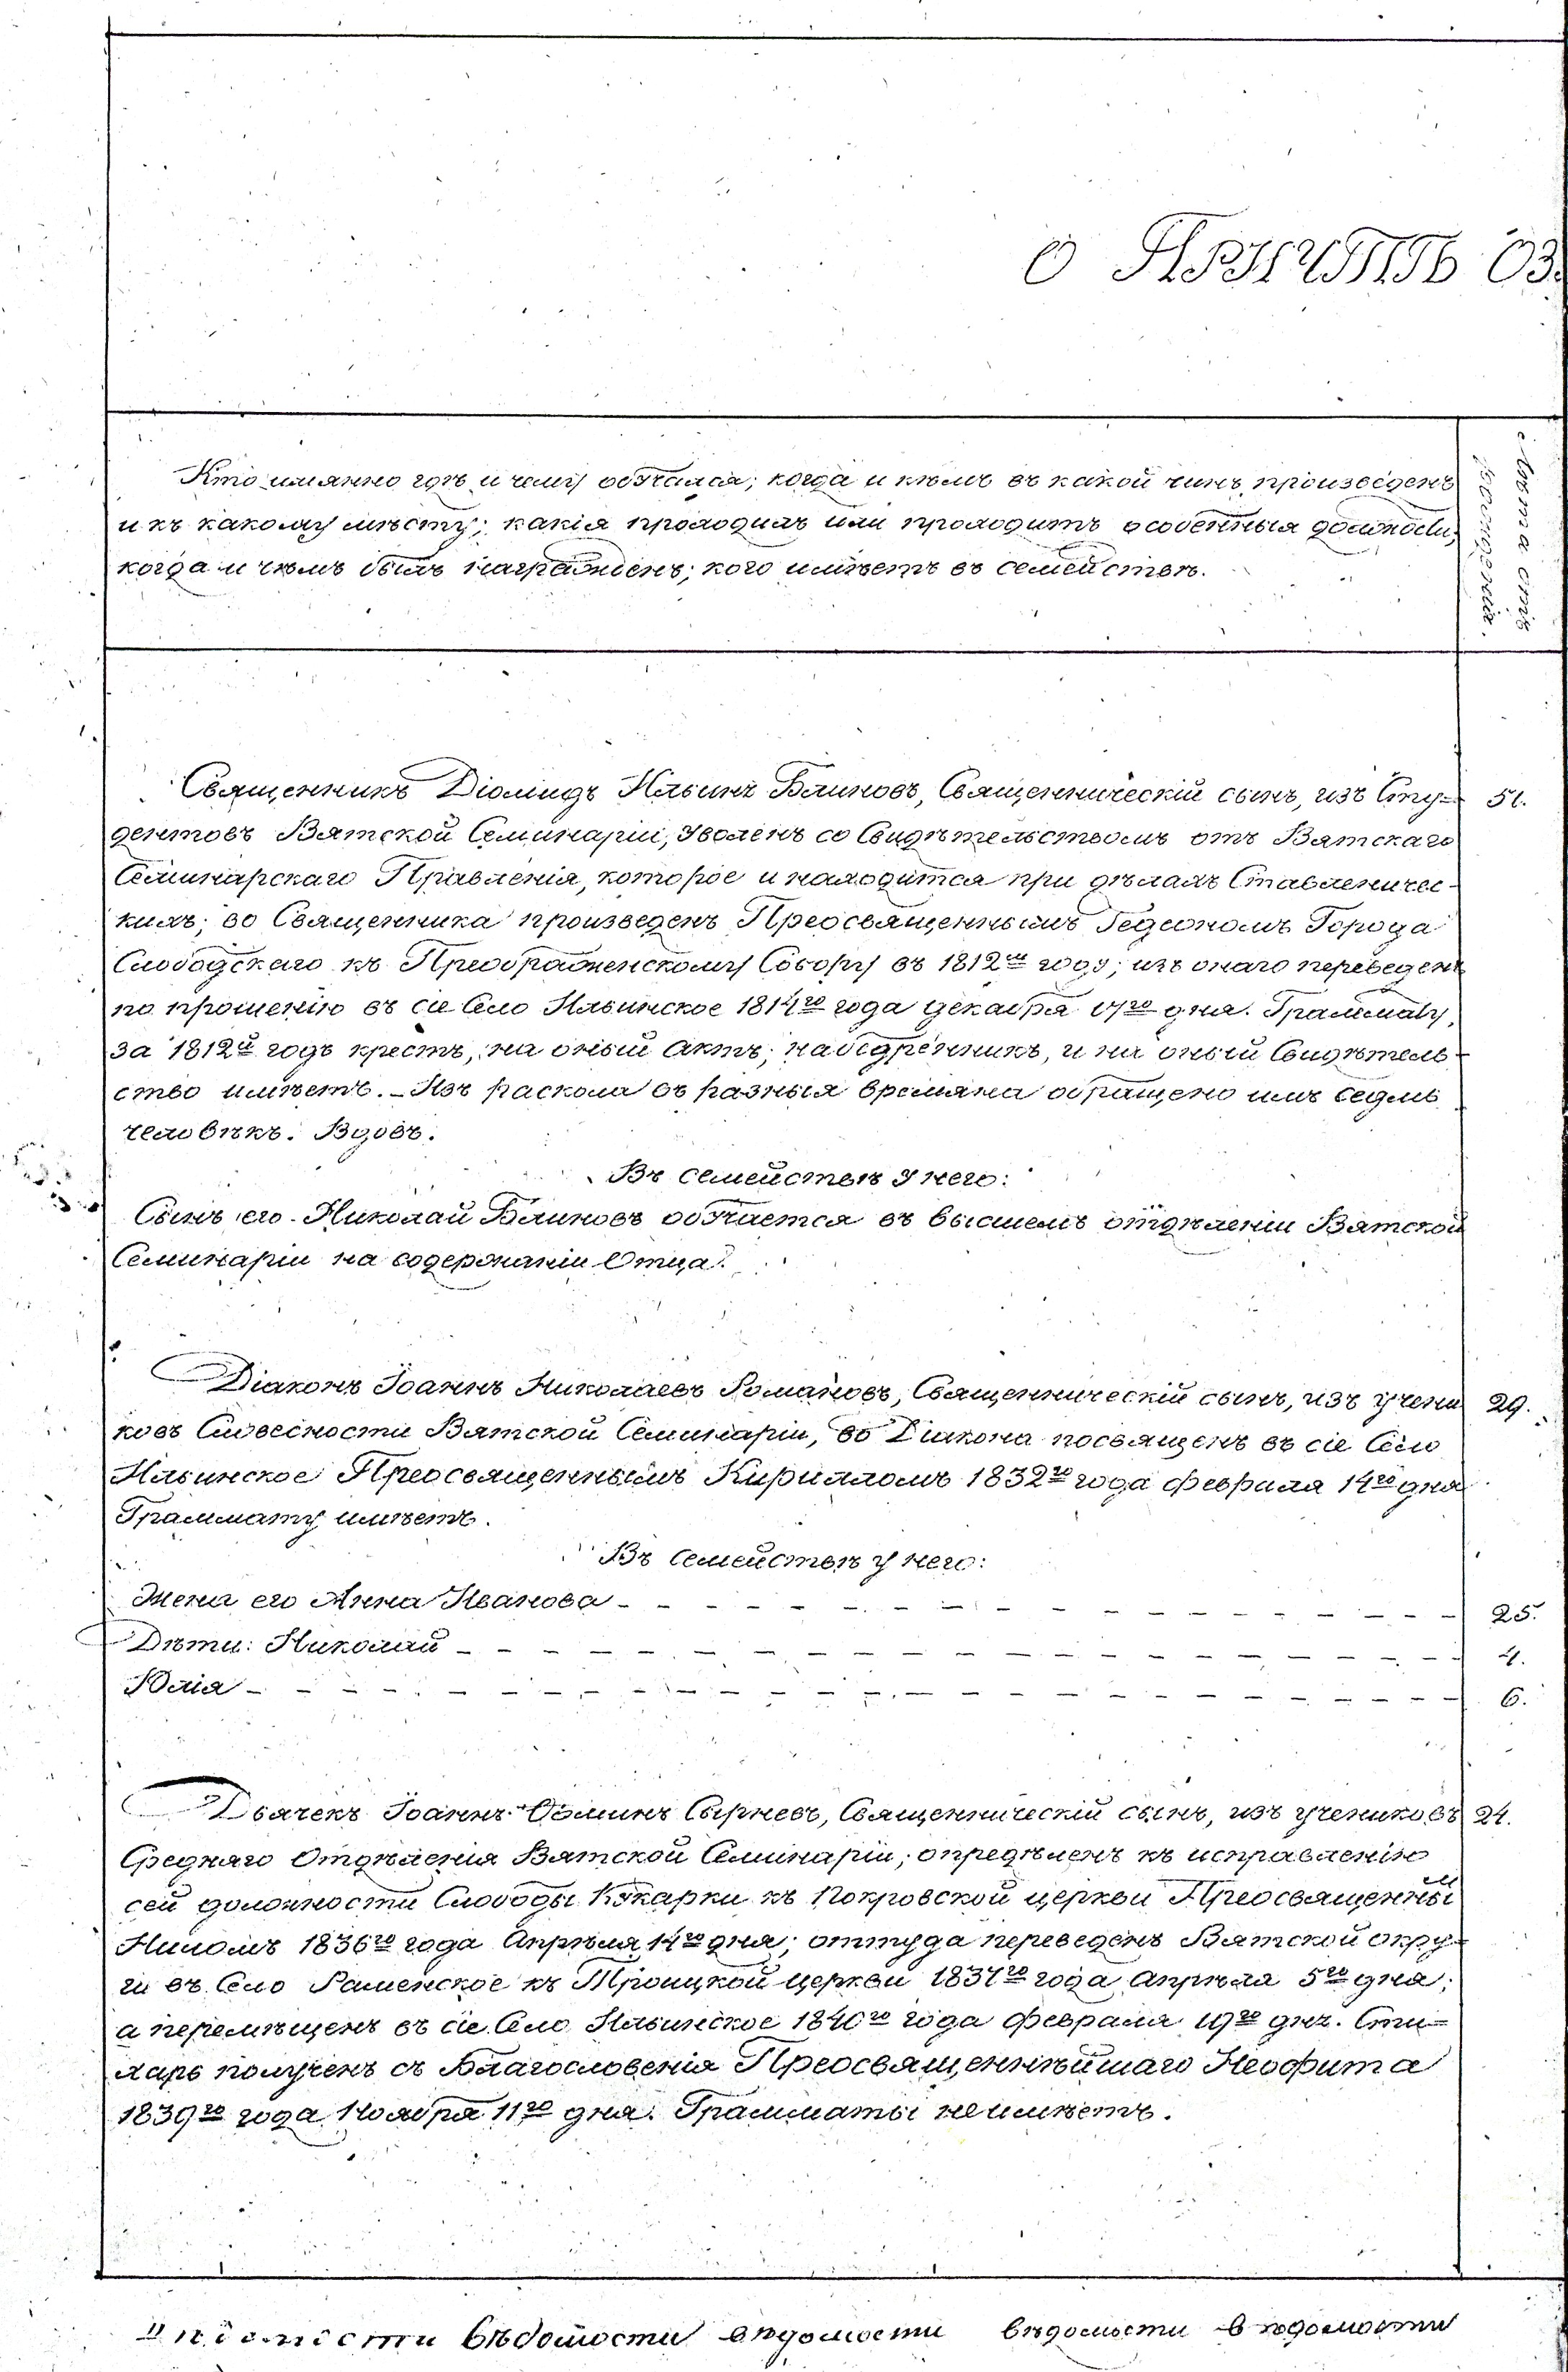 О ПРИЧТѢ ОЗ
Кто имянно гдѣ и чему обучался; когда и кѣмъ въ какой чинъ произведенъ
и къ какому мѣсту; какія проходилъ или проходитъ особенныя должности;
когда и чѣмъ былъ награжденъ; кого имѣетъ въ семействѣ.
Лѣта отъ
рожденія.
Священникъ Діомидъ Ильинъ Блиновъ, Священническій сынъ, изъ Сту= 51.
дентовъ Вятской Семинаріи, уволенъ со Свидѣтельствомъ отъ Вятскаго
Семинарскаго Правленія, которое и находится при дѣлахъ Ставленичес-
кихъ; во Священника произведенъ Преосвященнымъ Гедеономъ Города
Слободскаго къ Преображенскому Собору въ 1812м году; изъ онаго переведенъ
по прошенію въ сіе Село Ильинское 1814го года декабря 17го дня. Граммату,
за 1812й годъ крестъ, на оный Актъ; набедренникъ, и на оный Свидѣтель-
ство имѣетъ. – Изъ раскола въ разныя времяна обращено имъ седмь
человѣкъ. Вдовъ.
Въ семействѣ у него:
Сынъ его Николай Блиновъ обучается въ высшемъ отдѣленіи Вятской
Семинаріи на содержаніи Отца.
Діаконъ Іоаннъ Николаевъ Романовъ, Священническій сынъ, изъ учени 29.
ковъ Словесности Вятской Семинаріи, во Діакона посвященъ въ сіе Село
Ильинское Преосвященнымъ Кирилломъ 1832го года февраля 14го дня
Граммату имѣетъ.
Въ Семействѣ у него:
Жена его Анна Иванова - - - 25.
Дѣти: Николай - - - 4.
Юлія - - - 6.
Дьячекъ Іоаннъ Козминъ Сырневъ, Священническій сынъ, изъ учениковъ 24.
Средняго Отдѣленія Вятской Семинаріи; опредѣленъ къ исправленію
сей должности Слободы Кукарки къ Покровской церкви Преосвященны м
Ниломъ 1836го года Апрѣля 14го дня; оттуда переведенъ Вятской окру=
ги въ Село Раменское къ Троицкой церкви 1837го года Апрѣля 5го дня;
а перемѣщенъ въ сіе Село Ильинское 1840го года февраля 19го дня. Сти=
харь полученъ съ Благословенія Преосвященнѣйшаго Неофита
1839го года Ноября 11го дня. Грамматы неимѣетъ.
вѣдомости вѣдомости вѣдомости вѣдомости